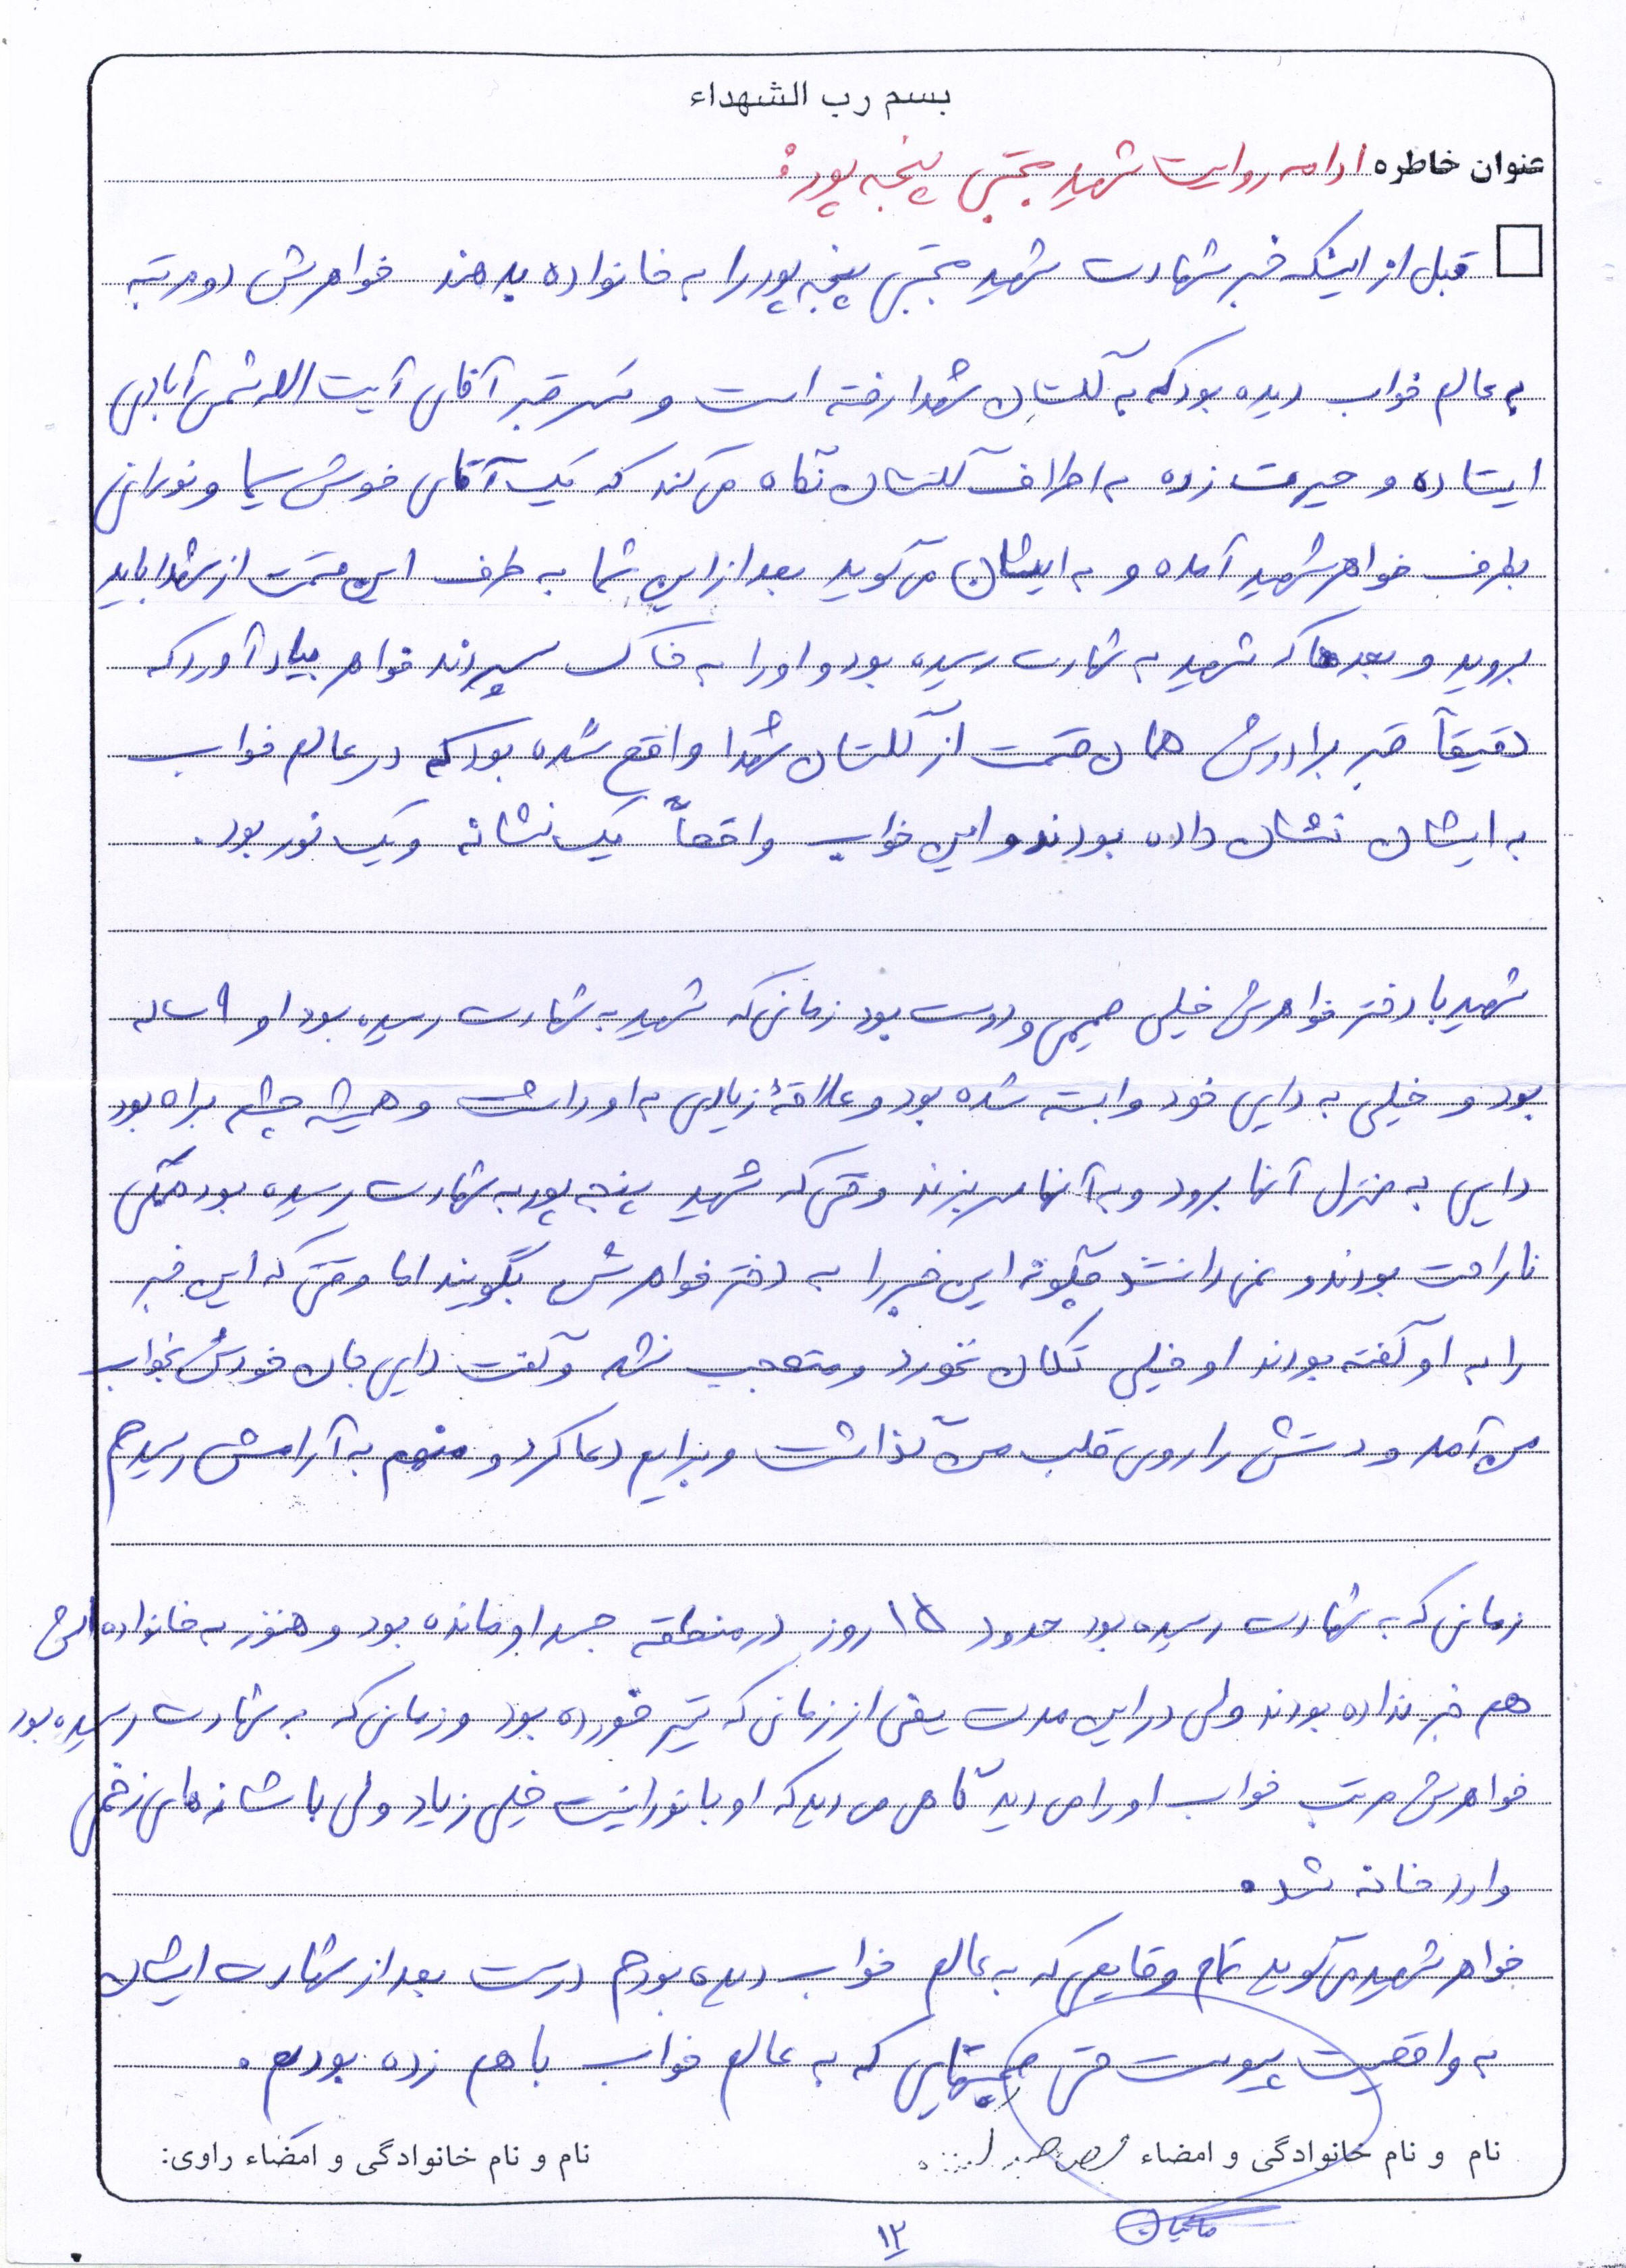 بسم رب الشهداء
عنوان خاطره ادامه روایت شهید مجتبی پنجه پور:
قبل از اینکه خبر شهادت شهید مجتبی پنجه پور را به خانواده بدهند خواهرش دو مرتبه
به عالم خواب دیده بود که به گلستان شهدا رفته است و سر قبر آقای آیت الله شمس آبادی
ایستاده و حیرت زده به اطراف گلستان نگاه می کند که یک آقای خوش سیما و نورانی
بطرف خواهر شهید آمده و به ایشان می گوید بعد از این شما به طرف این قسمت از شهدا باید
بروید و بعدها که شهید به شهادت رسیده بود و او را به خاک سپردند خواهر بیاد آورد که
دقیقاً قبر برادرش همان قسمت از گلستان شهدا واقع شده بود که در عالم خواب
به ایشان نشان داده بودند و این خواب واقعاً یک نشانه و یک نور بود.
شهید با دختر خواهرش خیلی صمیمی و دوست بود زمانی که شهید به شهادت رسیده بود او ۹ ساله
بود و خیلی به دایی خود وابسته شده بود و علاقهٔ زیادی به او داشت و همیشه چشم براه بود
دایی به منزل آنها برود و به آنها سر بزند وقتی که شهید پنجه پور به شهادت رسیده بود همگی
ناراحت بودند و نمی دانستند چگونه این خبر را به دختر خواهرش بگویند اما وقتی که این خبر
را به او گفته بودند او خیلی تکان نخورد و متعجب نشد و گفت دایی جان خودش بخواب
من آمد و دستش را روی قلب من گذاشت و برایم دعا کرد و منهم به آرامش رسیدم
زمانی که به شهادت رسیده بود حدود ۱۵ روز در منطقه جسد او مانده بود و هنوز به خانواده اش
هم خبر نداده بودند ولی در این مدت یعنی از زمانی که تیر خورده بود و زمانی که به شهادت رسیده بود
خواهرش مرتب خواب او را می دید گاهی می دید که او با نورانیت خیلی زیاد ولی با شانه های زخمی
وارد خانه شده
خواهر شهید می گوید تمام وقایعی که به عالم خواب دیده بودم درست بعد از شهادت ایشان
به واقعیت پیوست حتی صحبتهایی که به عالم خواب با هم زده بودیم.
نام و نام خانوادگی و امضاء
نام و نام خانوادگی و امضاء راوی:
۱۲